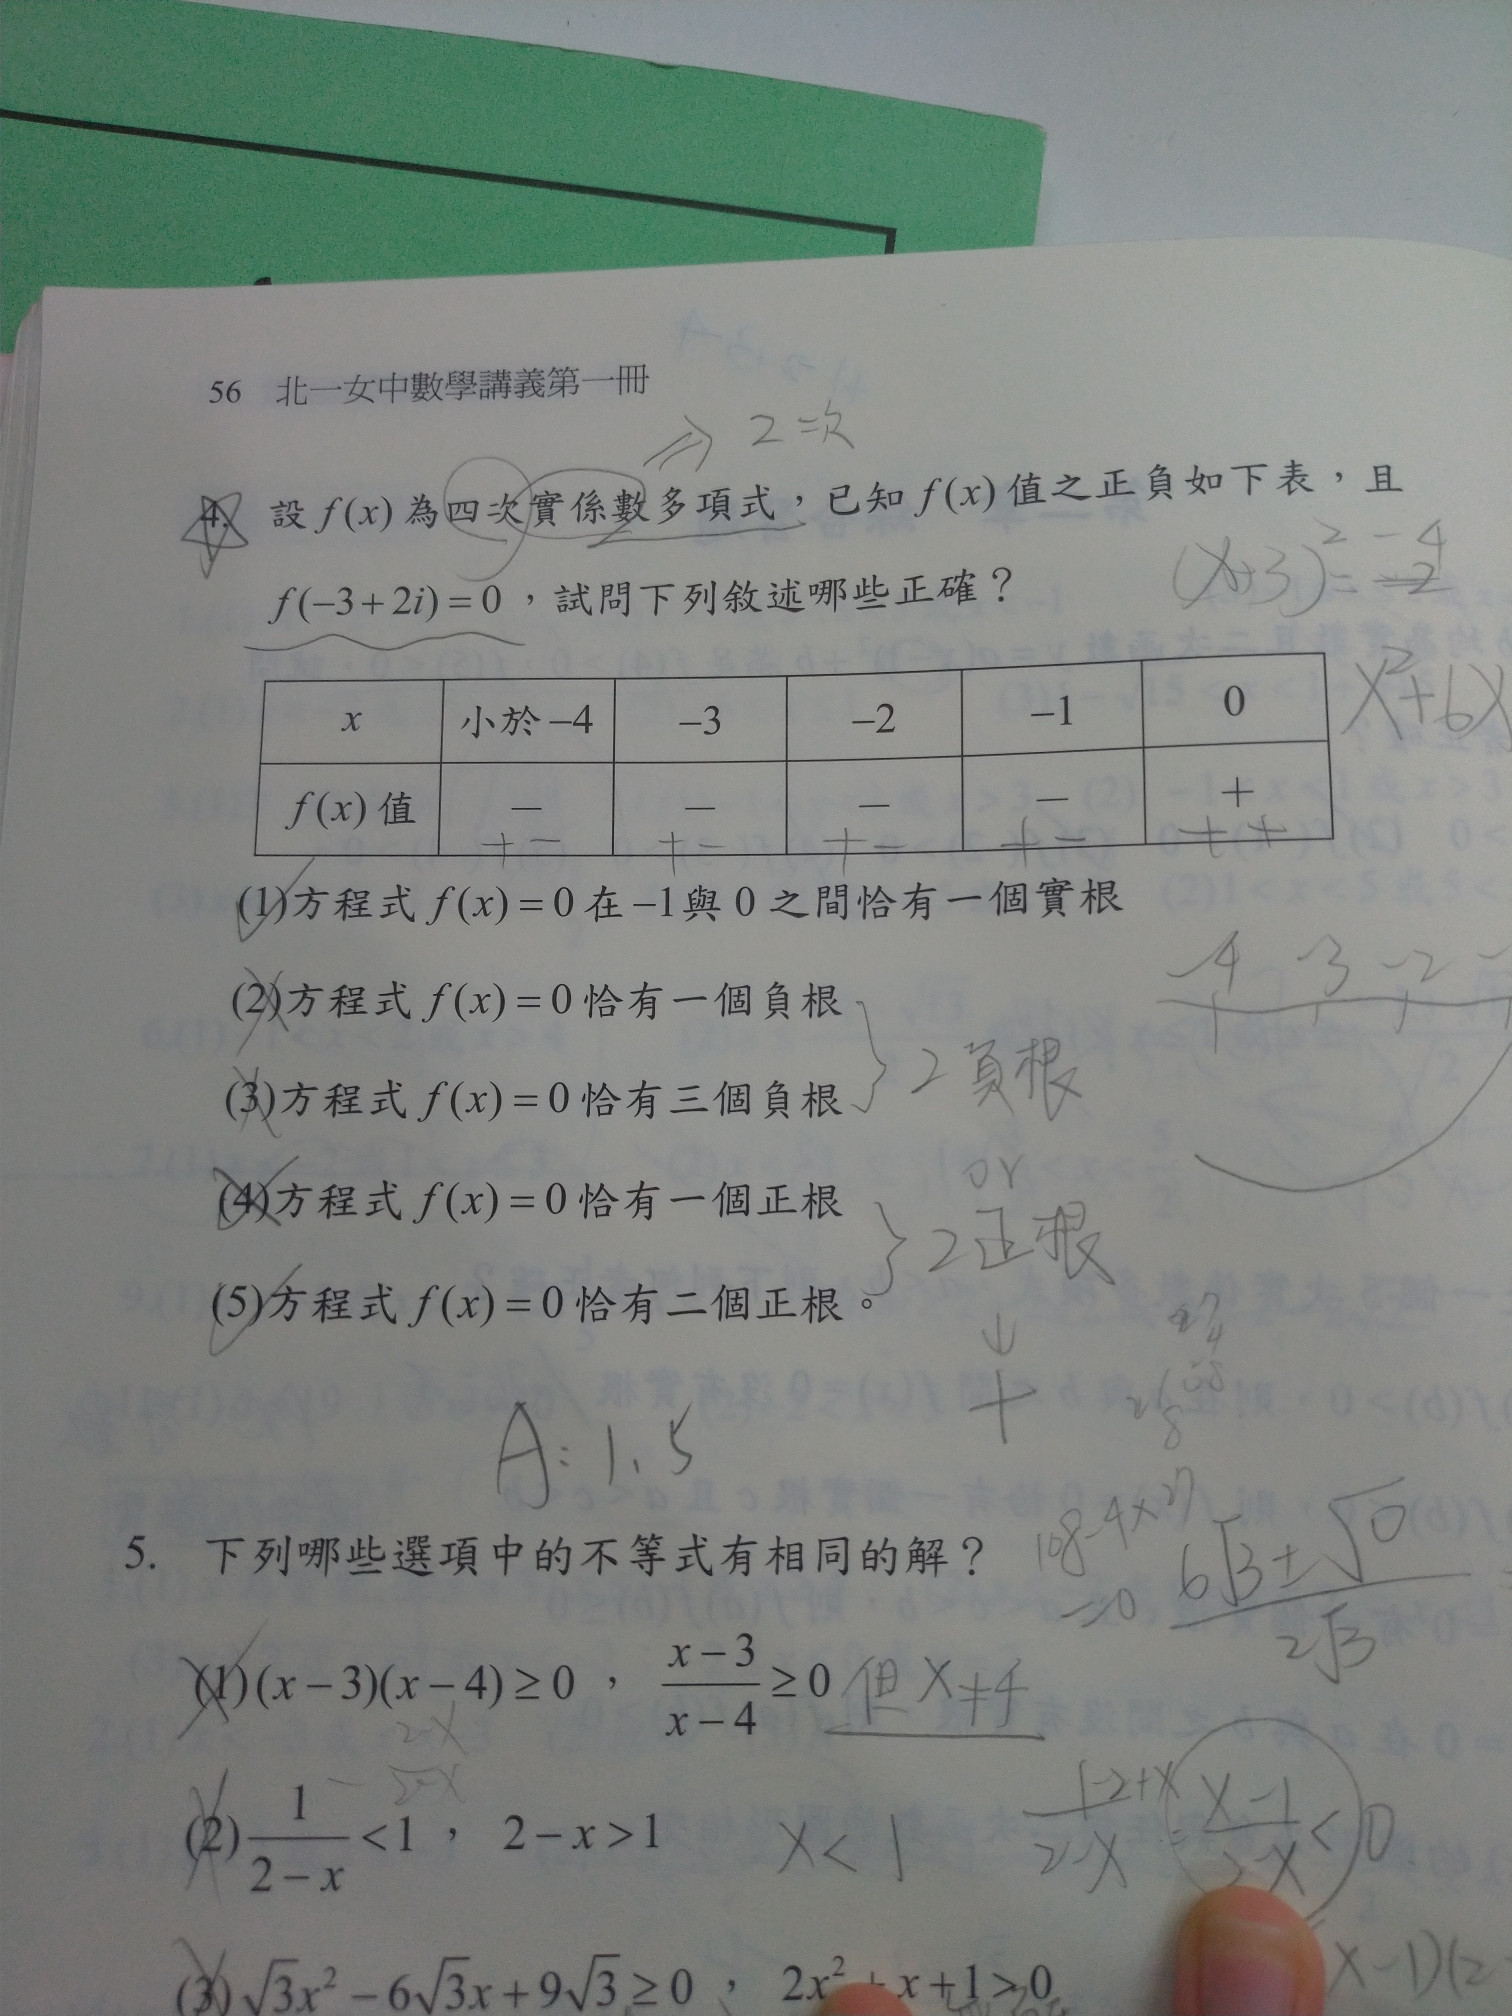 56 北一女中數學講義第一冊
⇒ 2=次
4. 設 f(x) 為四次實係數多項式，已知 f(x) 值之正負如下表，且
f(−3+2i)=0，試問下列敘述哪些正確？
(x+3)² = −4
x²+6x
x 小於−4 −3 −2 −1 0
f(x) 值 − − − − +
+− +− +− +− ++
(1)方程式 f(x)=0 在 −1與 0 之間恰有一個實根
(2)方程式 f(x)=0 恰有一個負根
(3)方程式 f(x)=0 恰有三個負根
2負根
or
(4)方程式 f(x)=0 恰有一個正根
2正根
(5)方程式 f(x)=0 恰有二個正根。
↓
+
−4 −3 −2
A: 1、5
5. 下列哪些選項中的不等式有相同的解？
108−4×27
=0
6√3±√0
2√3
(1)(x−3)(x−4)≥0， (x−3)/(x−4)≥0 但x≠4
(2) 1/(2−x)<1， 2−x>1 x<1
(1−2+x)/(2−x) = (x−1)/(2−x) < 0
(3)√3x²−6√3x+9√3≥0， 2x²+x+1>0
x−1)(2